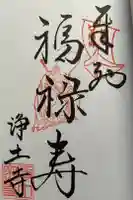 奉拝
福禄寿
浄土寺